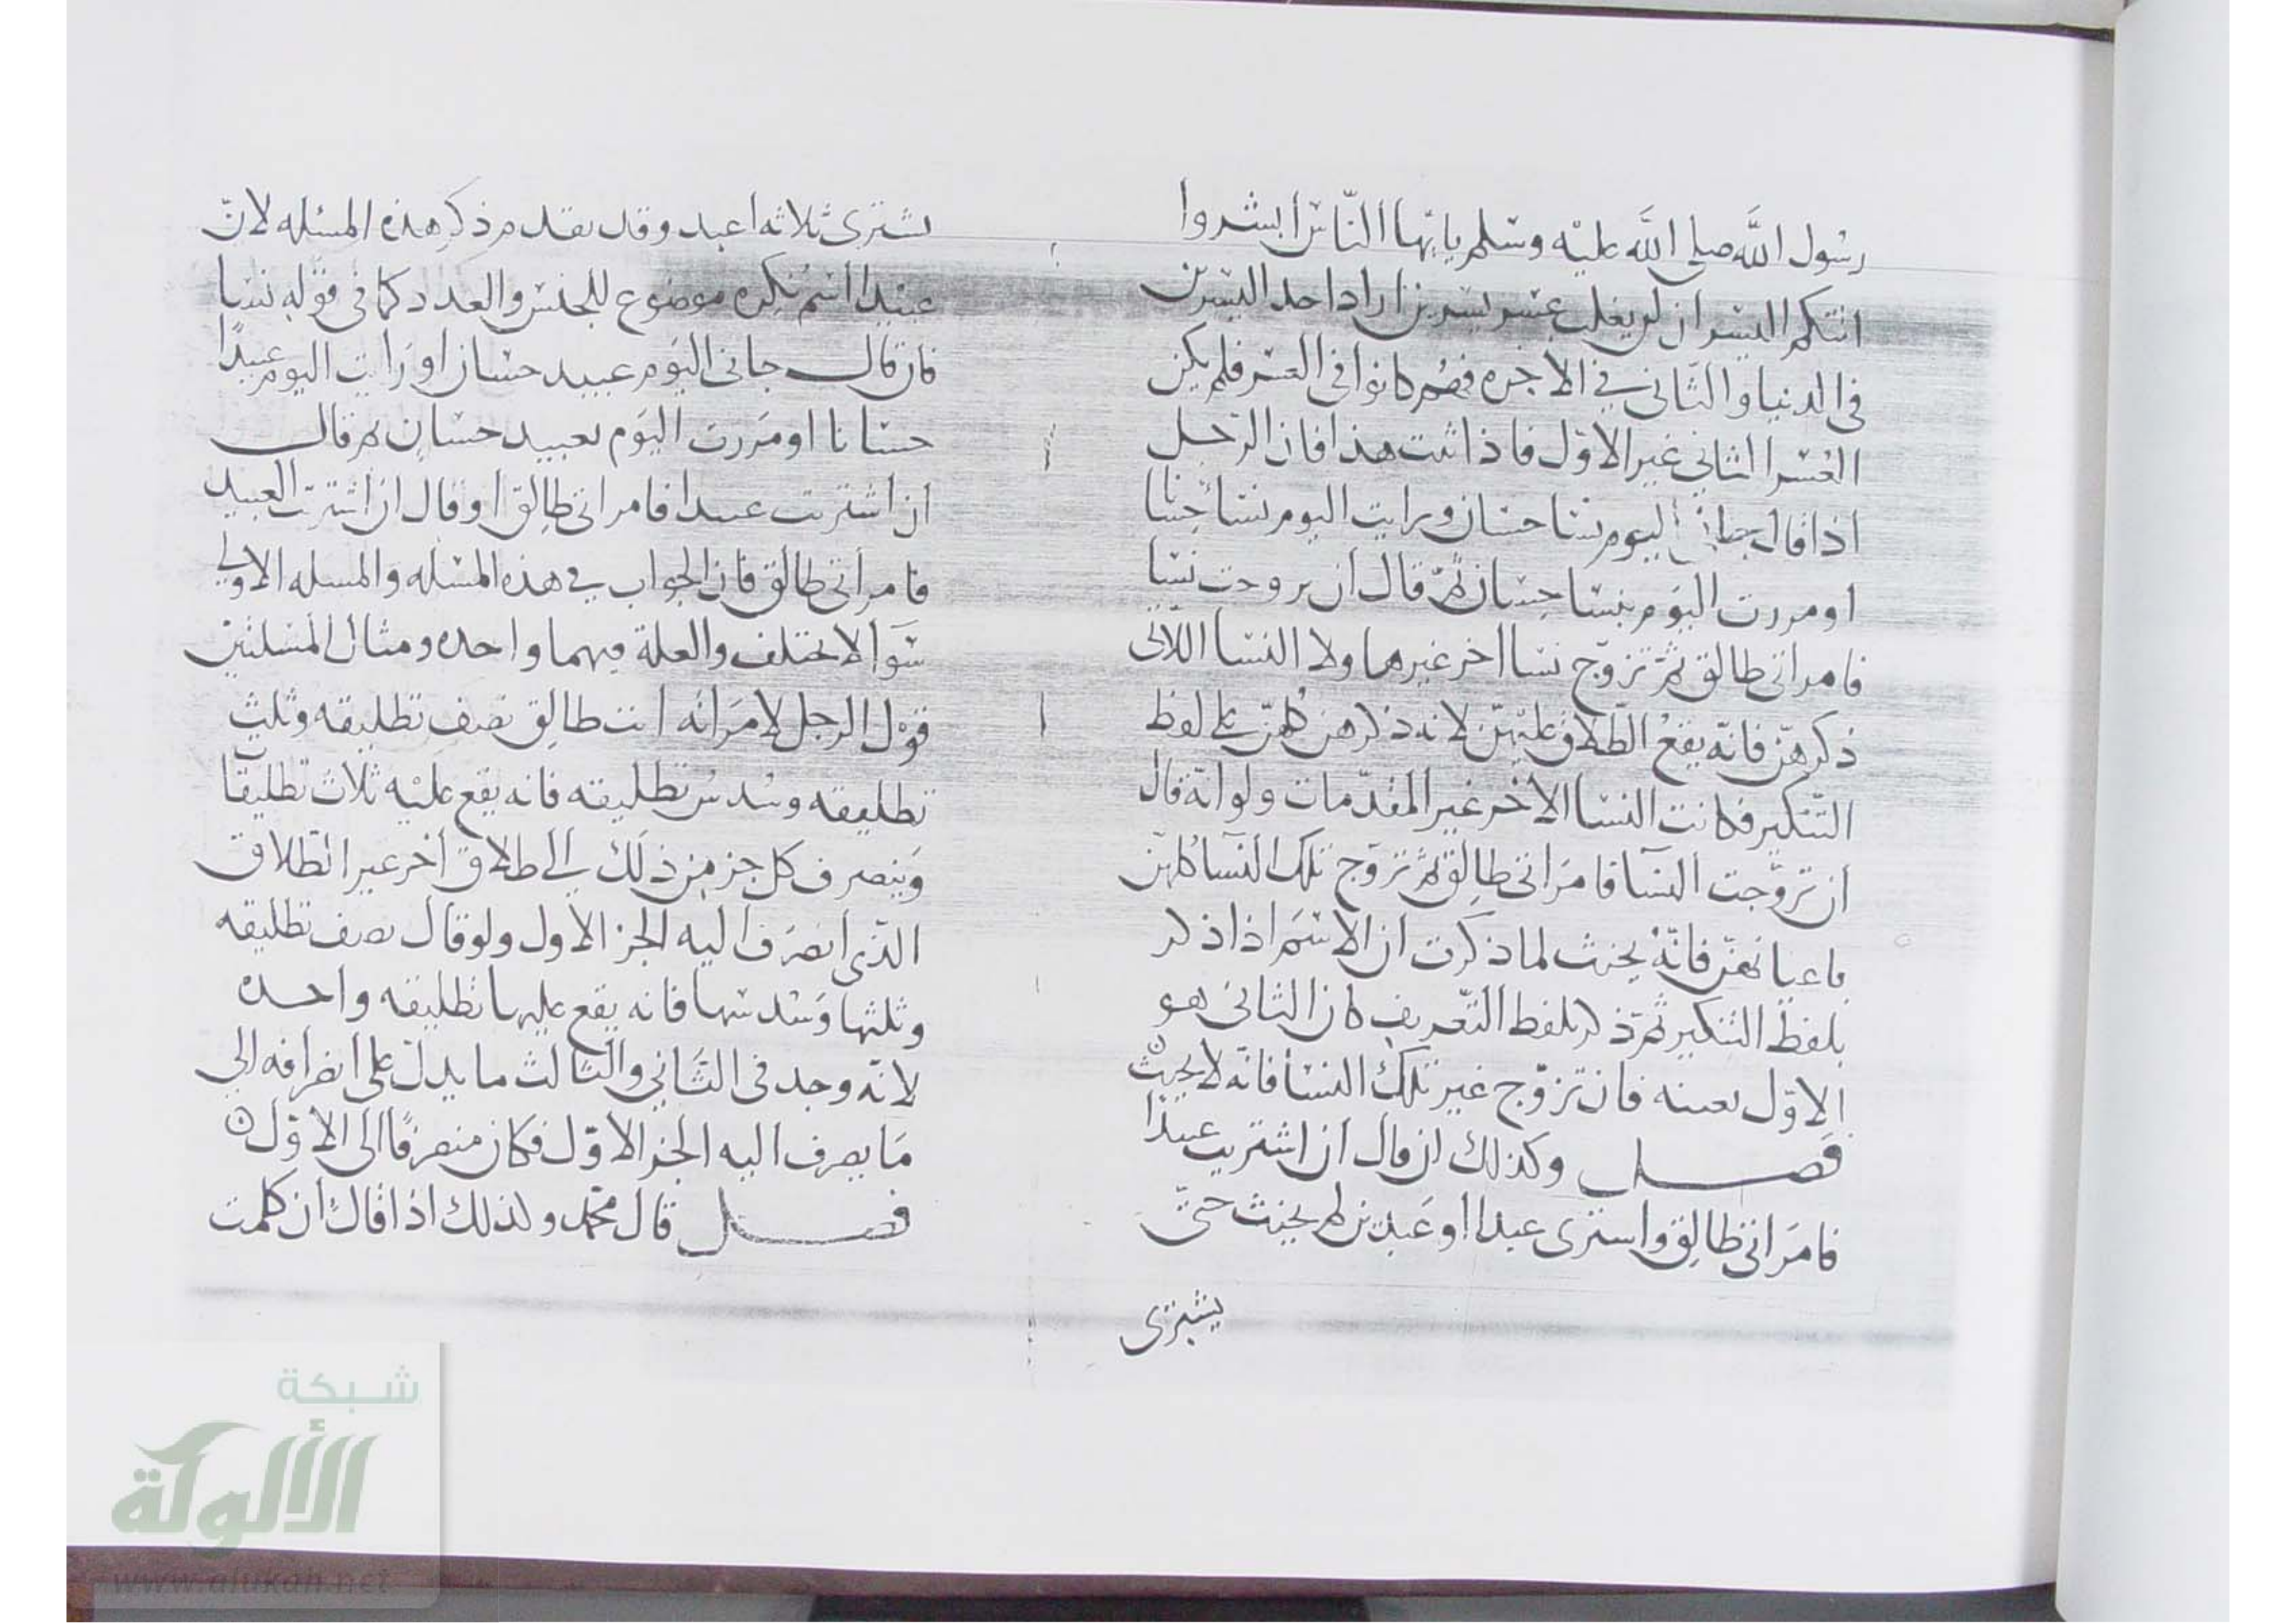 رسول الله صلى الله عليه وسلم يايها الناس ابشروا
اتتكم اليسر ان لن يغلب عسر يسرين اراد احد اليسرين
في الدنيا والثاني في الاخره فهم كانوا في العسر فلم يكن
العسر الثاني غير الاول فاذا ثبت هذا فان الرجل
اذا قال جاني اليوم نسا حسان ورايت اليوم نسا حسانا
او مررت اليوم بنسا حسان ثم قال ان تزوجت نسا
فامراتي طالق ثم تزوج نسا اخر غيرها ولا النسا اللاتي
ذكرهن فانه يقع الطلاق عليهن لانه ذكرهن كلهن على لفظ
التنكير فكانت النسا الاخر غير المقدمات ولو انه قال
ان تزوجت النسا فامراتي طالق ثم تزوج تلك النسا كلهن
باعيانهن فانه يحنث لما ذكرت ان الاسم اذا ذكر
بلفظ التنكير ثم ذكر بلفظ التعريف كان الثاني هو
الاول بعينه فان تزوج غير تلك النسا فانه لا يحنث
فصل وكذلك ان قال ان اشتريت عبيدا
فامراتي طالق واشترى عبدا او عبدين لم يحنث حتى
يشتري
يشترى ثلاثه اعبد وقد تقدم ذكر هذه المسله لان
عبيدا اسم نكره موضوع للجنس والعدد كما في قوله نسا
فان قال جاني اليوم عبيد حسان او رايت اليوم عبيدا
حسانا او مررت اليوم بعبيد حسان ثم قال
ان اشتريت عبيدا فامراتي طالق او قال ان اشتريت العبيد
فامراتي طالق فان الجواب في هذه المسله والمسله الاولى
سوا لا يختلف والعلة فيهما واحده ومثال المسلتين
قول الرجل لامراته انت طالق نصف تطليقه وثلث
تطليقه وسدس تطليقه فانه يقع عليه ثلاث تطليقات
وينصرف كل جز من ذلك الى طلاق اخر غير الطلاق
الذي انصرف اليه الجز الاول ولو قال نصف تطليقه
وثلثها وسدسها فانه يقع عليها تطليقه واحده
لانه وجد في الثاني والثالث ما يدل على انصرافه الى
ما يصرف اليه الجز الاول فكان منصرفا الى الاول
فصل قال محمد ولذلك اذا قال ان كلمت
شبكة
الألوكة
www.alukah.net